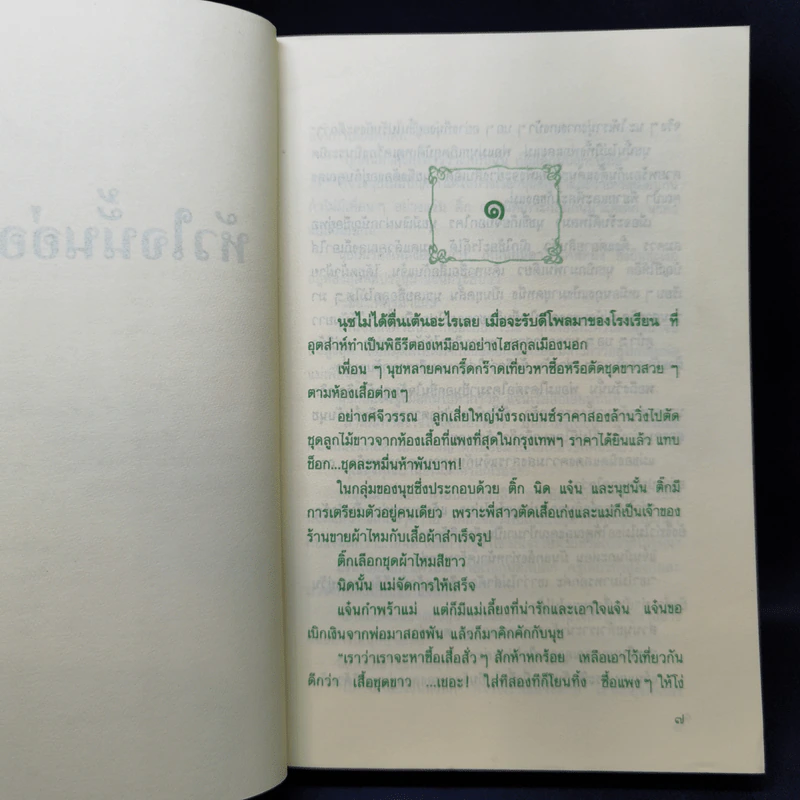 หัวใจนั้นอ่อ
๑
นุชไม่ได้ตื่นเต้นอะไรเลย เมื่อจะรับดีโพลมาของโรงเรียน ที่
อุตส่าห์ทำเป็นพิธีรีตองเหมือนอย่างไฮสกูลเมืองนอก
เพื่อน ๆ นุชหลายคนกรี๊ดกร๊าดเที่ยวหาซื้อหรือตัดชุดขาวสวย ๆ
ตามห้องเสื้อต่างๆ
อย่างศจีวรรณ ลูกเสี่ยใหญ่นั่งรถเบ๊นซ์ราคาสองล้านวิ่งไปตัด
ชุดลูกไม้ขาวจากห้องเสื้อที่แพงที่สุดในกรุงเทพๆ ราคาได้ยินแล้ว แทบ
ช็อก...ชุดละหมื่นห้าพันบาท!
ในกลุ่มของนุชซึ่งประกอบด้วย ติ๊ก นิด แจ๋น และนุชนั้น ติ๊กมี
การเตรียมตัวอยู่คนเดียว เพราะพี่สาวตัดเสื้อเก่งและแม่ก็เป็นเจ้าของ
ร้านขายผ้าไหมกับเสื้อผ้าสำเร็จรูป
ติ๊กเลือกชุดผ้าไหมสีขาว
นิดนั้น แม่จัดการให้เสร็จ
แจ๋นกำพร้าแม่ แต่ก็มีแม่เลี้ยงที่น่ารักและเอาใจแจ๋น แจ๋นขอ
เบิกเงินจากพ่อมาสองพัน แล้วก็มาคิกคักกับนุช
"เราว่าเราจะหาซื้อเสื้อสั่วๆ สักห้าหกร้อย เหลือเอาไว้เที่ยวกัน
ดีกว่า เสื้อชุดขาว ...เชอะ! ใส่ทีสองทีก็โยนทิ้ง ซื้อแพงๆ ให้โง่
๗